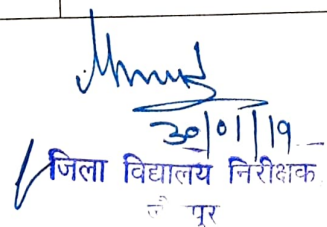 30/01/19
जिला विद्यालय निरीक्षक
पुर